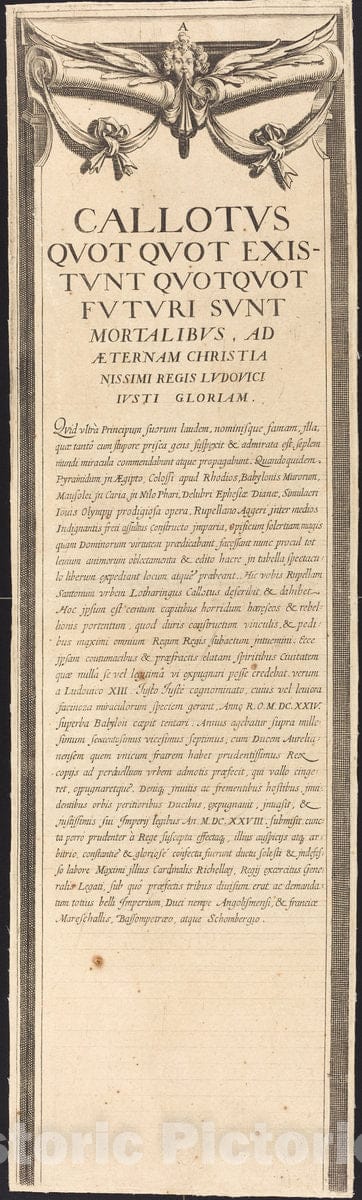 A
CALLOTVS
QVOT QVOT EXIS-
TVNT QVOTQVOT
FVTVRI SVNT
MORTALIBVS, AD
ÆTERNAM CHRISTIA
NISSIMI REGIS LVDOVICI
IVSTI GLORIAM.
Quid vltrà Principum suorum laudem, nominisque famam, illa,
quæ tantò cum stupore prisca gens suspexit & admirata est, septem
mundi miracula commendabant atque propagabunt. Quandoquidem
Pyramidum in Ægipto, Colossi apud Rhodios, Babylonis Murorum,
Mausolei in Caria, in Nilo Phari, Delubri Ephesiæ Dianæ, Simulacri
Iouis Olympij prodigiosa opera, Rupellano Aggeri inter medios
Indignantis freti assultus constructo imparia, opificum solertiam magis
quam Dominorum virtutem prædicabant, facessant nunc procul tot
leuium animorum oblectamenta & edito hacre in tabella spectacu
lo liberum expediant locum atque præbeant. Hic vobis Rupellam
Santonum vrbem Lotharingus Callotus describit & exhibet
Hoc ipsum est centum capitibus horridum hæreseos & rebel-
lionis portentum, quod duris constrictum vinculis, & pedi
bus maximi omnium Regum Regis subactum intuemini. Ecce
ipsam contumacibus & præfractis elatam spiritibus Ciuitatem
quæ nulla se vel legitima vi expugnari posse credebat, verum
a Ludouico XIII Iusto Iustè cognominato, cuius vel leuiora
facinora miraculorum speciem gerant, Anno R.O.M.DC.XXIV.
superba Babylon cæpit tentari. Annus agebatur supra mille-
simum sexcentesimus vicesimus septimus, cum Ducem Aurelia-
nensem quem vnicum fratrem habet prudentissimus Rex
copijs ad perduellum vrbem admotis præfecit, qui vallo cinge-
ret, oppugnaretque. Deniq, inuitis ac frementibus hostibus, inu-
dentibus orbis peritioribus Ducibus, expugnauit, inuasit, &
iustissimis sui Imperij legibus An M.DC.XXVIII. submisit. cunc-
ta porro prudenter à Rege suscepta effectaq, illius auspicijs atq, ar-
bitrio, constantiè & gloriosè confecta fuerunt ductu solesti & indefes-
so labore Maximi illius Cardinalis Richellæj, Regij exercitus Gene
ralis Legati, sub quo præfectis tribus diuisum erat ac demanda-
tum totius belli Imperium, Duci nempe Angolismensi, & franciæ
Mareschallis, Bassompetræo, atque Schombergio.
Historic Pictoric